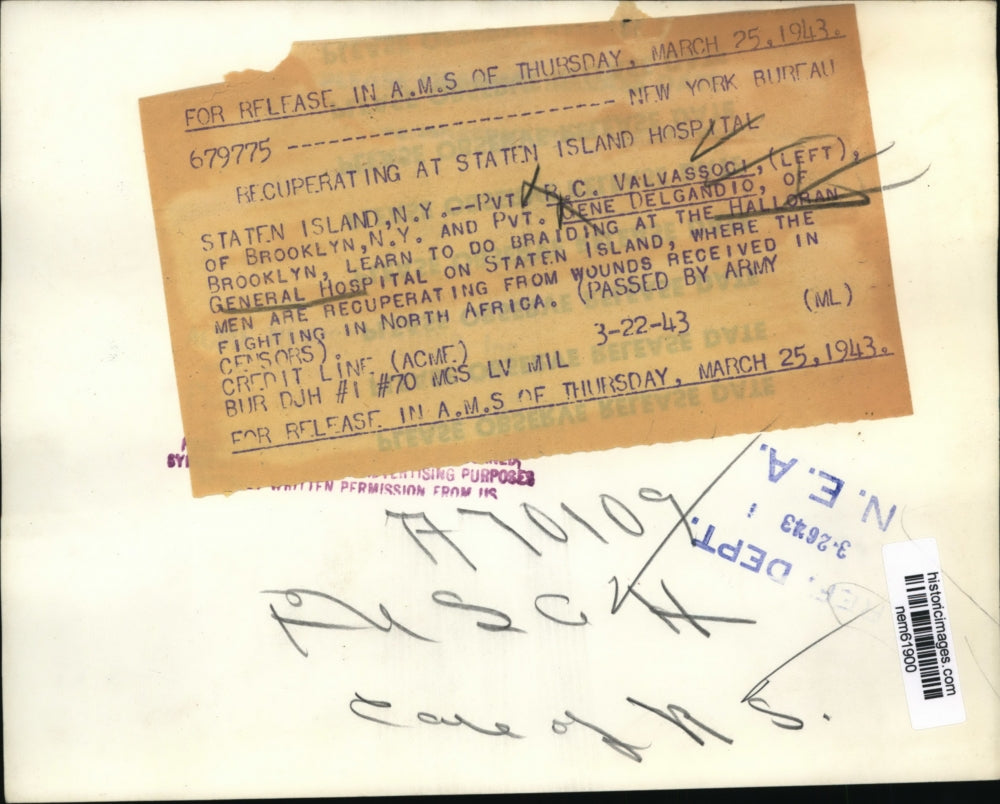 FOR RELEASE IN A.M.S OF THURSDAY, MARCH 25, 1943.
679775 ---------------------------- NEW YORK BUREAU
RECUPERATING AT STATEN ISLAND HOSPITAL
STATEN ISLAND, N.Y.--PVT. C. VALVASSOCI, (LEFT),
OF BROOKLYN, N.Y. AND PVT. GENE DELGANDIO, OF
BROOKLYN, LEARN TO DO BRAIDING AT THE HALLORAN
GENERAL HOSPITAL ON STATEN ISLAND, WHERE THE
MEN ARE RECUPERATING FROM WOUNDS RECEIVED IN
FIGHTING IN NORTH AFRICA. (PASSED BY ARMY
CENSORS).
CREDIT LINE (ACME) 3-22-43 (ML)
BUR DJH #1 #70 MGS LV MIL
FOR RELEASE IN A.M.S OF THURSDAY, MARCH 25, 1943.
PLEASE OBSERVE RELEASE DATE
PURPOSES
WRITTEN PERMISSION FROM US
A70109
N.E.A.
3-2643
DEPT.
care of
historicimages.com
nem61900